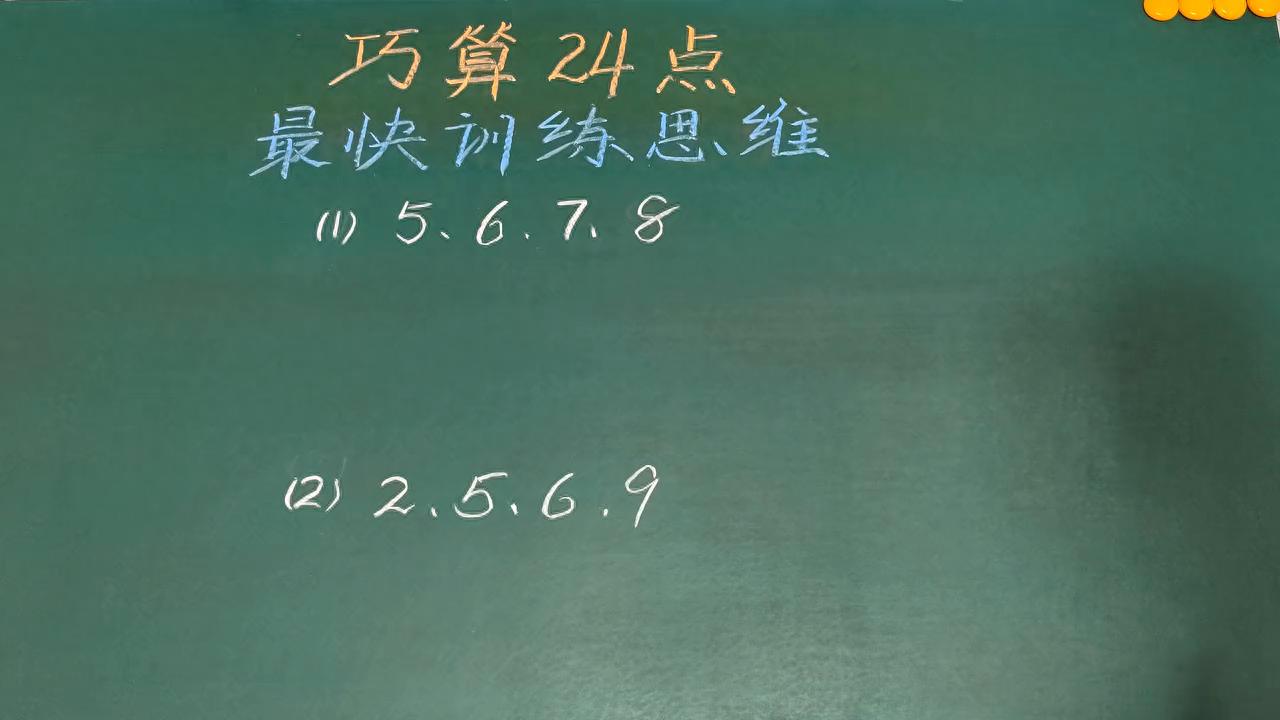 巧算24点
最快训练思维
(1) 5、6、7、8
(2) 2、5、6、9